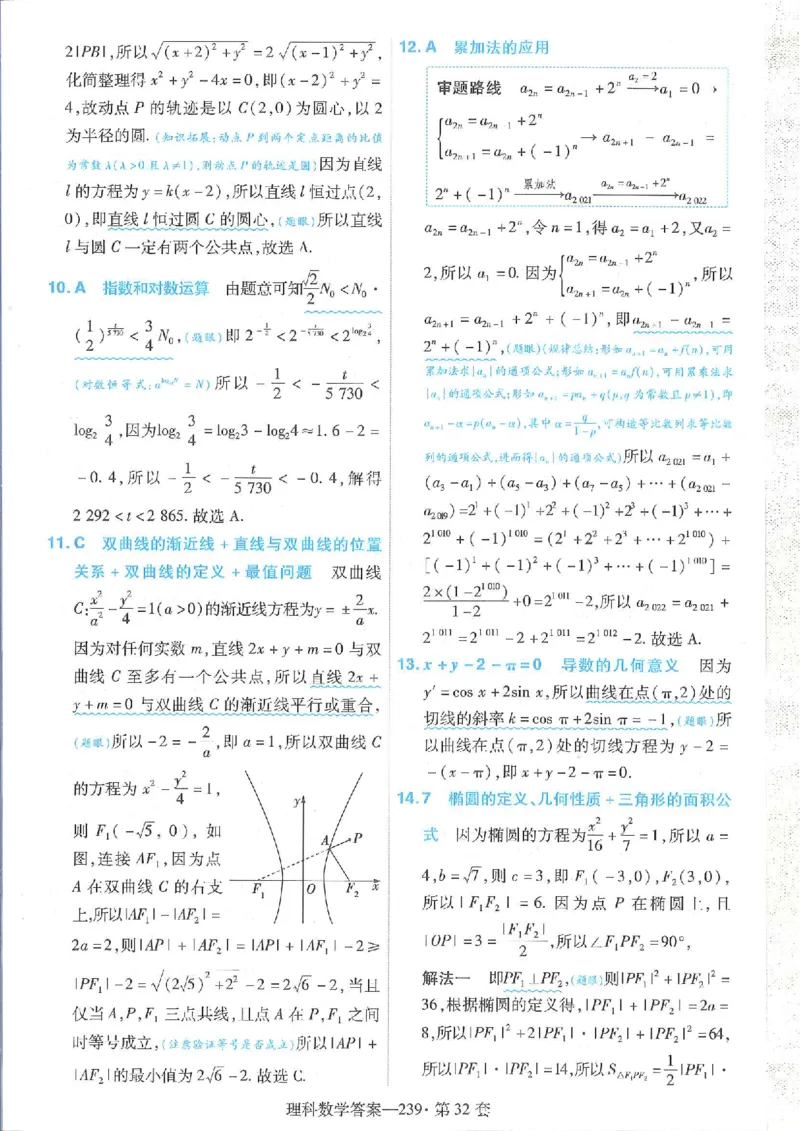 2|PB|,所以√((x+2)²+y²)=2√((x-1)²+y²),
化简整理得 x²+y²-4x=0,即(x-2)²+y²=
4,故动点 P 的轨迹是以 C(2,0)为圆心,以 2
为半径的圆.(知识拓展:动点 P 到两个定点距离的比值
为常数 λ(λ>0 且 λ≠1),则动点 P 的轨迹是圆)因为直线
l 的方程为 y=k(x-2),所以直线 l 恒过点(2,
0),即直线 l 恒过圆 C 的圆心,(题眼)所以直线
l 与圆 C 一定有两个公共点,故选 A.
10.A 指数和对数运算 由题意可知 √2/2 N₀<N₀·
(1/2)^(t/5 730)<3/4 N₀,(题眼)即 2^(-1/2)<2^(-t/5 730)<2^(log₂ 3/4),
(对数恒等式:a^(logₐN)=N)所以 -1/2<-t/5 730<
log₂ 3/4,因为log₂ 3/4=log₂3-log₂4≈1.6-2=
-0.4,所以 -1/2<-t/5 730<-0.4,解得
2 292<t<2 865.故选 A.
11.C 双曲线的渐近线+直线与双曲线的位置
关系+双曲线的定义+最值问题 双曲线
C:x²/a²-y²/4=1(a>0)的渐近线方程为y=±2/a x.
因为对任何实数 m,直线 2x+y+m=0 与双
曲线 C 至多有一个公共点,所以直线 2x+
y+m=0 与双曲线 C 的渐近线平行或重合,
(题眼)所以 -2=-2/a,即 a=1,所以双曲线 C
的方程为 x²-y²/4=1,
则 F₁(-√5,0),如
图,连接 AF₁,因为点
A 在双曲线 C 的右支
上,所以|AF₁|-|AF₂|=
y
A
P
F₁
O
F₂
x
2a=2,则|AP|+|AF₂|=|AP|+|AF₁|-2≥
|PF₁|-2=√((2√5)²+2²)-2=2√6-2,当且
仅当 A,P,F₁ 三点共线,且点 A 在 P,F₁ 之间
时等号成立,(注意验证等号是否成立)所以|AP|+
|AF₂|的最小值为 2√6-2.故选 C.
12.A 累加法的应用
审题路线 a₂ₙ=a₂ₙ₋₁+2ⁿ —a₂=2→ a₁=0 →
{a₂ₙ=a₂ₙ₋₁+2ⁿ
a₂ₙ₊₁=a₂ₙ+(-1)ⁿ → a₂ₙ₊₁-a₂ₙ₋₁=
2ⁿ+(-1)ⁿ —累加法→ a₂₀₂₁ —a₂ₙ=a₂ₙ₋₁+2ⁿ→ a₂₀₂₂
a₂ₙ=a₂ₙ₋₁+2ⁿ,令 n=1,得 a₂=a₁+2,又a₂=
2,所以 a₁=0.因为{a₂ₙ=a₂ₙ₋₁+2ⁿ
a₂ₙ₊₁=a₂ₙ+(-1)ⁿ,所以
a₂ₙ₊₁=a₂ₙ₋₁+2ⁿ+(-1)ⁿ,即a₂ₙ₊₁-a₂ₙ₋₁=
2ⁿ+(-1)ⁿ,(题眼)(规律总结:形如 aₙ₊₁=aₙ+f(n),可用
累加法求{aₙ}的通项公式;形如 aₙ₊₁=aₙf(n),可用累乘法求
{aₙ}的通项公式;形如 aₙ₊₁=paₙ+q(p,q 为常数且 p≠1),即
aₙ₊₁-α=p(aₙ-α),其中 α=q/(1-p),可构造等比数列求等比数
列的通项公式,进而得{aₙ}的通项公式)所以 a₂₀₂₁=a₁+
(a₃-a₁)+(a₅-a₃)+(a₇-a₅)+…+(a₂₀₂₁-
a₂₀₁₉)=2¹+(-1)¹+2²+(-1)²+2³+(-1)³+…+
2¹⁰¹⁰+(-1)¹⁰¹⁰=(2¹+2²+2³+…+2¹⁰¹⁰)+
[(-1)¹+(-1)²+(-1)³+…+(-1)¹⁰¹⁰]=
2×(1-2¹⁰¹⁰)/(1-2)+0=2¹⁰¹¹-2,所以 a₂₀₂₂=a₂₀₂₁+
2¹⁰¹¹=2¹⁰¹¹-2+2¹⁰¹¹=2¹⁰¹²-2.故选 A.
13.x+y-2-π=0 导数的几何意义 因为
y′=cos x+2sin x,所以曲线在点(π,2)处的
切线的斜率 k=cos π+2sin π=-1,(题眼)所
以曲线在点(π,2)处的切线方程为 y-2=
-(x-π),即 x+y-2-π=0.
14.7 椭圆的定义、几何性质+三角形的面积公
式 因为椭圆的方程为x²/16+y²/7=1,所以 a=
4,b=√7,则 c=3,即 F₁(-3,0),F₂(3,0),
所以|F₁F₂|=6.因为点 P 在椭圆上,且
|OP|=3=|F₁F₂|/2,所以∠F₁PF₂=90°,
解法一 即PF₁⊥PF₂,(题眼)则|PF₁|²+|PF₂|²=
36,根据椭圆的定义得,|PF₁|+|PF₂|=2a=
8,所以|PF₁|²+2|PF₁|·|PF₂|+|PF₂|²=64,
所以|PF₁|·|PF₂|=14,所以 S△F₁PF₂=1/2|PF₁|·
理科数学答案—239·第 32 套